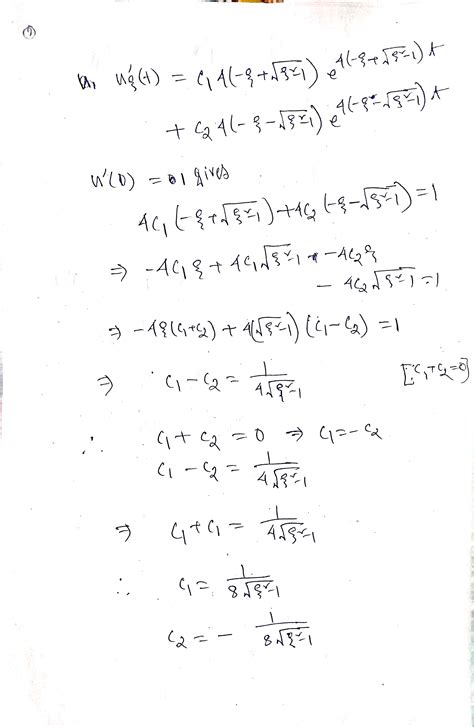 u'ξ(t) = c₁ 4(-ξ+√ξ²-1) e^{4(-ξ+√ξ²-1)t}
+ c₂ 4(-ξ-√ξ²-1) e^{4(-ξ-√ξ²-1)t}
u'(0) = 1 gives
4c₁(-ξ+√ξ²-1)+4c₂(-ξ-√ξ²-1)=1
⇒ -4c₁ξ + 4c₁√ξ²-1 -4c₂ξ
- 4c₂√ξ²-1=1
⇒ -4ξ(c₁+c₂) + 4(√ξ²-1)(c₁-c₂) =1
⇒ c₁-c₂ = 1/4√ξ²-1 [∵c₁+c₂=0]
∴ c₁+c₂ = 0 ⇒ c₁=-c₂
c₁-c₂ = 1/4√ξ²-1
⇒ c₁+c₁ = 1/4√ξ²-1
∴ c₁= 1/8√ξ²-1
c₂ = - 1/8√ξ²-1